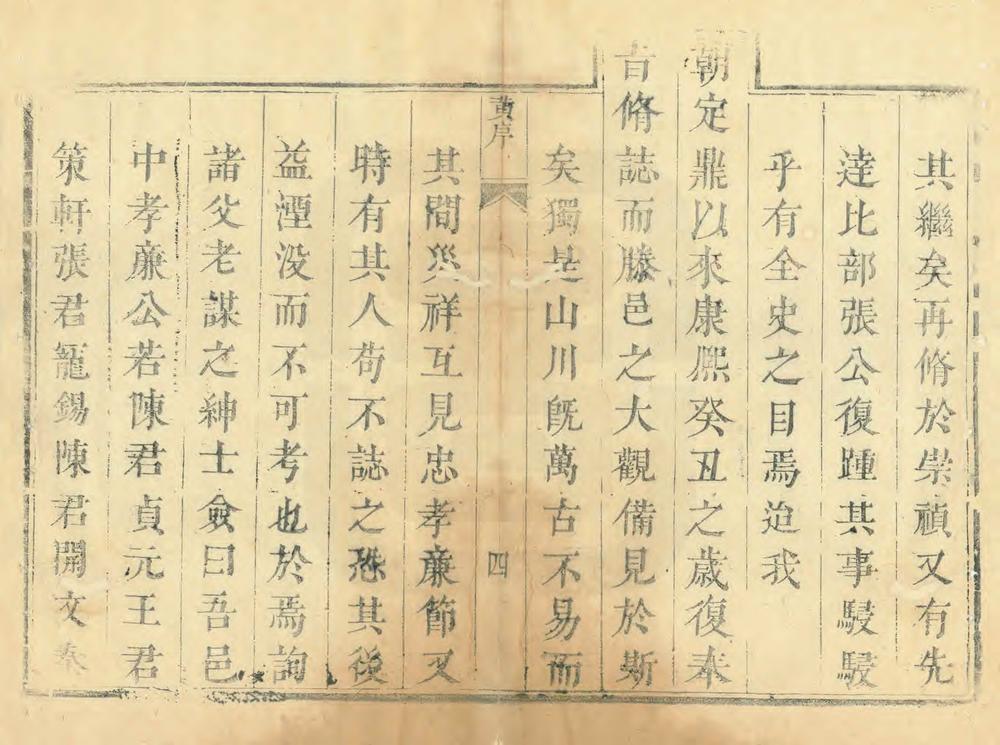 其繼矣再脩於崇禎又有先
達比部張公復踵其事駸駸
乎有全史之目焉迨我
朝定鼎以來康熈癸丑之歲復奉
旨脩誌而滕邑之大觀備見於斯
矣獨是山川旣萬古不易而
黄序
四
其間災祥互見忠孝亷節又
時有其人苟不誌之恐其後
益湮没而不可考也於焉詢
諸父老謀之紳士僉曰吾邑
中孝亷公若陳君貞元王君
策軒張君寵錫陳君開文秦